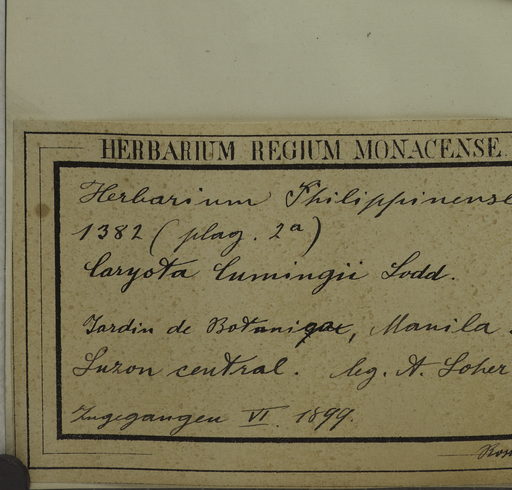 HERBARIUM REGIUM MONACENSE.
Herbarium Philippinense
1382 (plag. 2a)
Caryota Cumingii Lodd.
Jardin de Botanique, Manila.
Luzon central. leg. A. Loher
Zugegangen VI. 1899.